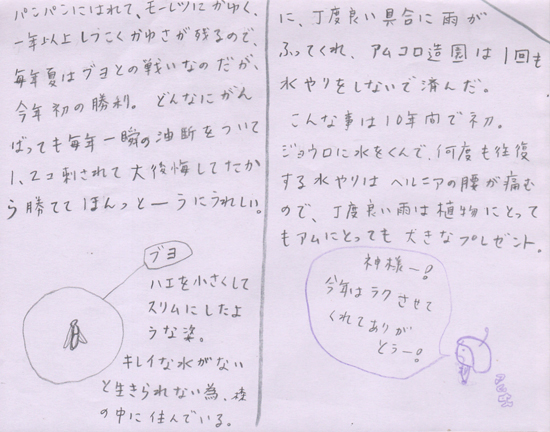 パンパンにはれて、モーレツにかゆく、
一年以上しつこくかゆさが残るので、
毎年夏はブヨとの戦いなのだが、
今年初の勝利。 どんなにがん
ばっても毎年一瞬の油断をついて
1、2コ刺されて大後悔してたか
ら勝ててほんっとーうにうれしい。
ブヨ
ハエを小さくして
スリムにしたよ
うな姿。
キレイな水がない
と生きられない為、
の中に住んでいる。
に、丁度良い具合に雨が
ふってくれ、アムコロ造園は1回も
水やりをしないで済んだ。
こんな事は10年間で初。
ジョウロに水をくんで、何度も往復
する水やりはヘルニアの腰が痛む
ので、丁度良い雨は植物にとって
もアムにとっても大きなプレゼント。
神様ー!
今年はラクさせて
くれてありが
とうー!